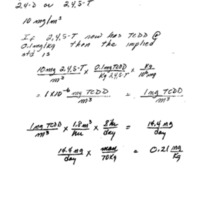 2,4-D or 2,4,5-T
10 mg/m³
If 2,4,5-T now has TCDD @
0.1mg/kg then the implied
std is
10mg 2,4,5-T / m³ × 0.1mg TCDD / Kg 2,4,5-T × Kg / 10⁶mg
= 1×10⁻⁶ mg TCDD / m³ = 1ng TCDD / m³
1ng TCDD / m³ × 1.8m³ / hr × 8hr / day = 14.4 ng / day
14.4 ng / day × man / 70Kg = 0.21 ng / Kg